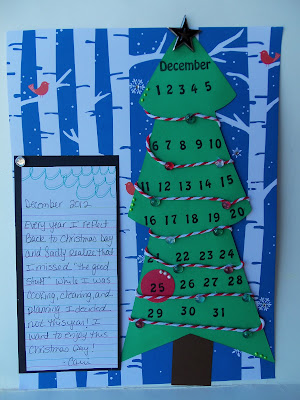 December
1 2 3 4 5
6 7 8 9 10
11 12 13 14 15
16 17 18 19 20
21 22 23 24
25 26 27 28
29 30 31
December 2012
Every Year I reflect
Back to Christmas day
and Sadly realize that
I missed "the good
stuff" while I was
cooking, cleaning, and
planning. I decided
not this year! I
want to enjoy this
Christmas Day!